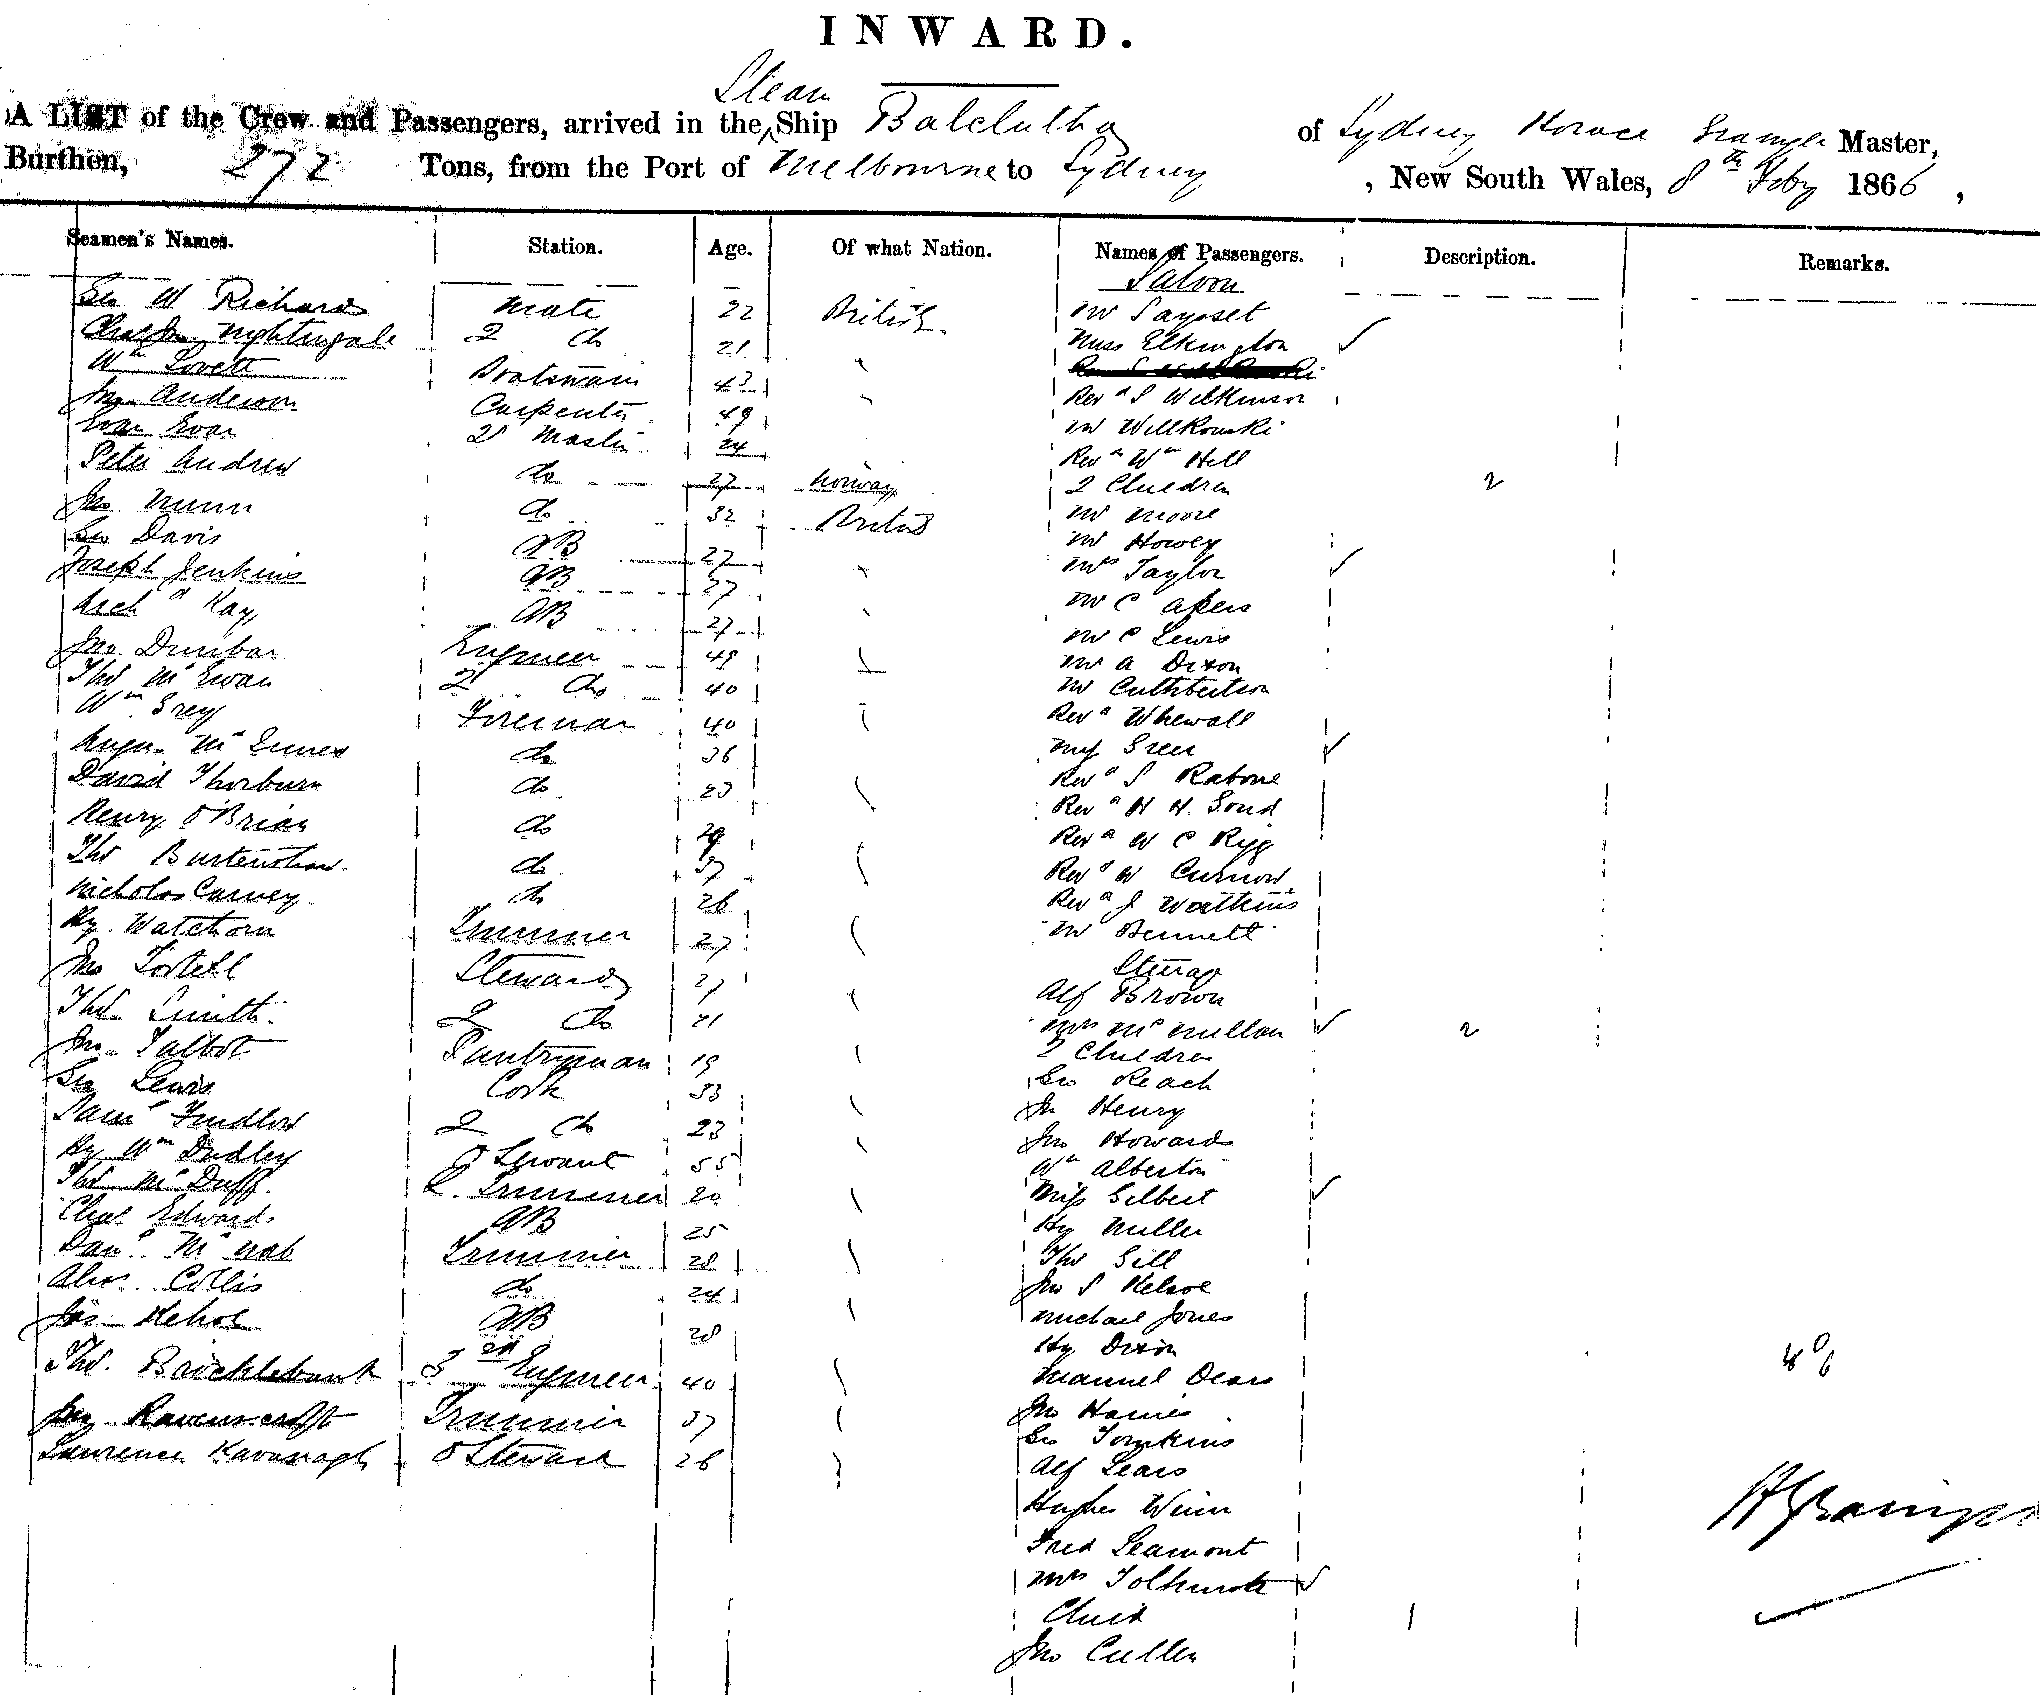 INWARD.
Steam
A LIST of the Crew and Passengers, arrived in the ^ Ship Balclutha of Sydney Horace Master,
Burthen, 272 Tons, from the Port of Melbourne to Sydney, New South Wales, 8th Feby 1866,
Seamen's Names. Station. Age. Of what Nation. Names of Passengers. Description. Remarks.
Saloon
Geo W Richards Mate 22 British Mr Paysset
Nightingale 2 do 21 Miss Elkington ✓
Wm Lovett Boatswain 43
Jno Anderson Carpenter 49 Revd S Wilkinson
Evan Evan 24 Mr Willkomski
Peter Andrew do 27 Norway Revd Wm Hill
2 Children 2
Jno Nunn do 32 British Mr Moore
Geo Davis AB 27 Mr Howey
Joseph Jenkins AB 27 Mrs Taylor ✓
Archd Kay AB 27 Mr C Akers
Jno Dunbar Engineer 49 Mr C Lewis
Thos McEwan 2 do 40 Mr A Dixon
Wm Grey Fireman 40 Mr Cuthbertson
Revd Whewall
McInnes do 36 Green ✓
David Thorburn do 23 Revd S Rabone
Henry O'Brian do 29 Revd H H Goud
Thos do 37 Revd W C Rigg
Nicholas Carney do 26 Revd W Curnow
Hy Watchorn Trimmer 27 Revd J Watkins
Mr Bennett
Jno Steward 27 Steerage
Thos Smith 2 do 21 Alf Brown
Jno Talbot Pantryman 19 Mrs McMillan ✓
2 Children 2
Geo Lewis Cook 33 Geo Reach
Saml Findlow 2 do 23 Jno Henry
Hy Wm Dudley 55 Jno Howard
Thos McDuff Trimmer 20 Wm Alberton
Chas Edwards AB 25 Miss Gilbert ✓
Danl McNab Trimmer 28 Hy Miller
Alex Collis do 24 Thos Gill
Jas Kehoe AB 28 Jno S Kelsoe
Michael Jones
Thos Brocklebank 3rd Engineer 40 Hy Dixon
Jno Ravenscroft Trimmer 37 Manuel Dears
Lawrence Kavanagh O Steward 26 Jno Haines
Geo Tomkins
Alf Sears
Hughes Winn
Fred Seamont
Mrs Tolhurst ✓
Child 1
Jno Cullen